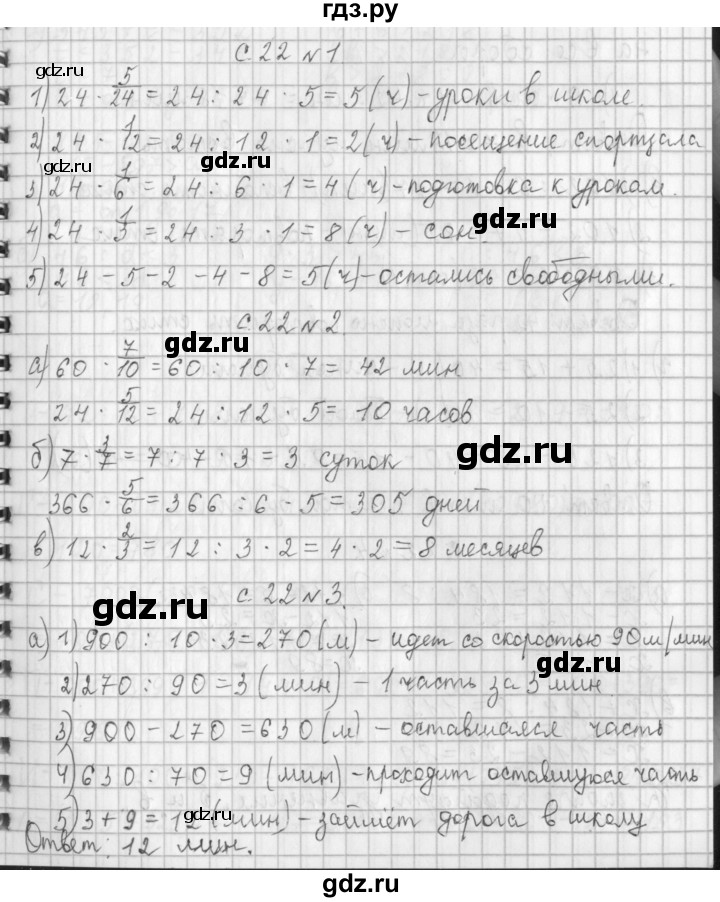 гдз.ру
с 22 №1
gdz.ru
1) 24 · 5/24 = 24 : 24 · 5 = 5 (ч) - уроки в школе.
2) 24 · 1/12 = 24 : 12 · 1 = 2 (ч) - посещение спортзала
gdz.ru
gdz.ru
3) 24 · 1/6 = 24 : 6 · 1 = 4 (ч) - подготовка к урокам.
4) 24 · 1/3 = 24 · 3 · 1 = 8 (ч) - сон.
gdz.ru
5) 24 - 5 - 2 - 4 - 8 = 5 (ч) - остались свободными.
с. 22 №2.
gdz.ru
а) 60 · 7/10 = 60 : 10 · 7 = 42 мин
24 · 5/12 = 24 : 12 · 5 = 10 часов
б) 7 · 3/7 = 7 : 7 · 3 = 3 суток
gdz.ru
366 · 5/6 = 366 : 6 - 5 = 305 дней
в) 12 · 2/3 = 12 : 3 · 2 = 4 · 2 = 8 месяцев
с. 22 №3.
gdz.ru
а) 1) 900 : 10 · 3 = 270 (м) - идет со скоростью 90 м/мин
gdz.ru
2) 270 : 90 = 3 (мин) - 1 часть за 3 мин
3) 900 - 270 = 630 (м) - оставшаяся часть
4) 630 : 70 = 9 (мин) - проходит оставшуюся часть
5) 3 + 9 = 12 (мин) - займёт дорога в школу
gdz.ru
Ответ: 12 мин.
gdz.ru